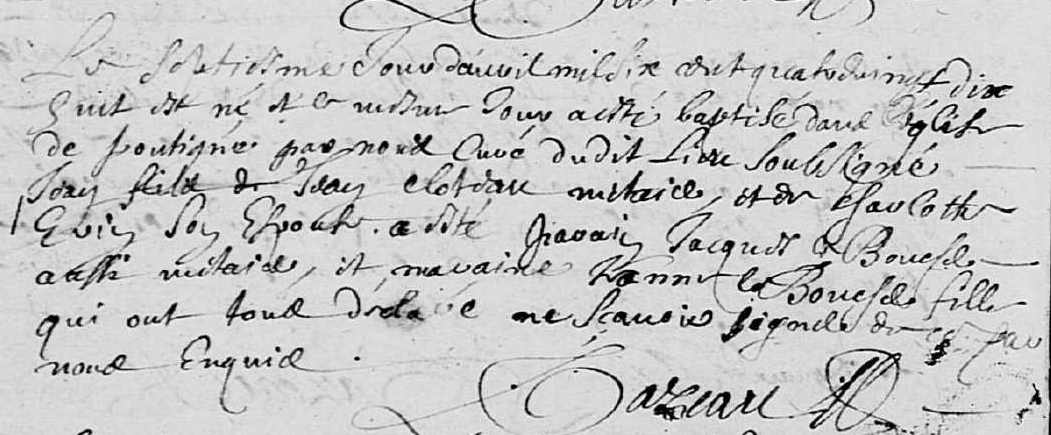 Le septiesme Jour d'avril mil six cent quatre vingt dix
huit est né et ce mesme Jour a esté baptisé dans l'église
de pontigné par nous Curé dudit Lieu soubsigné
Jean fils de Jean metaier, et de charlotte
son Espouse. a esté parain Jacques le Bouesde
aussi metaier, et maraine Renne le Bouesde fille
qui ont tous déclaré ne sçavoir signer de ce par
nous Enquis.